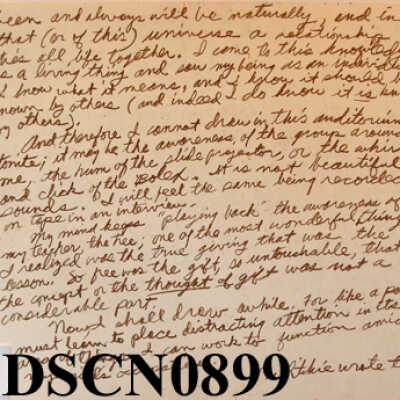 been and always will be naturally, and in
that (or of this) universe a relationship
he's all life together. I come to this knowled
s a living thing and saw my being as an
I know what it means, and I know it should b
nown by others (and indeed I do know it is kn
by others).
And therefore I cannot draw in this auditorium
tonite; it may be the awareness, of the groups around
me, the hum of the slide projector, or the whir
and click of the Bolex. It is not beautiful
sounds. I will feel the same being recorded
on tape in an interview.
My mind keeps "playing back" the awareness of
my teacher, the tree; one of the most wonderful things
I realized was the true giving that was the
lesson. So free was the gift, so untouchable, that
the concept or the thought of gift was not a
considerable part.
Now I shall draw awhile. For like a
must learn to place distracting attention in its
I can work to function amid
wrote t
DSCN0899